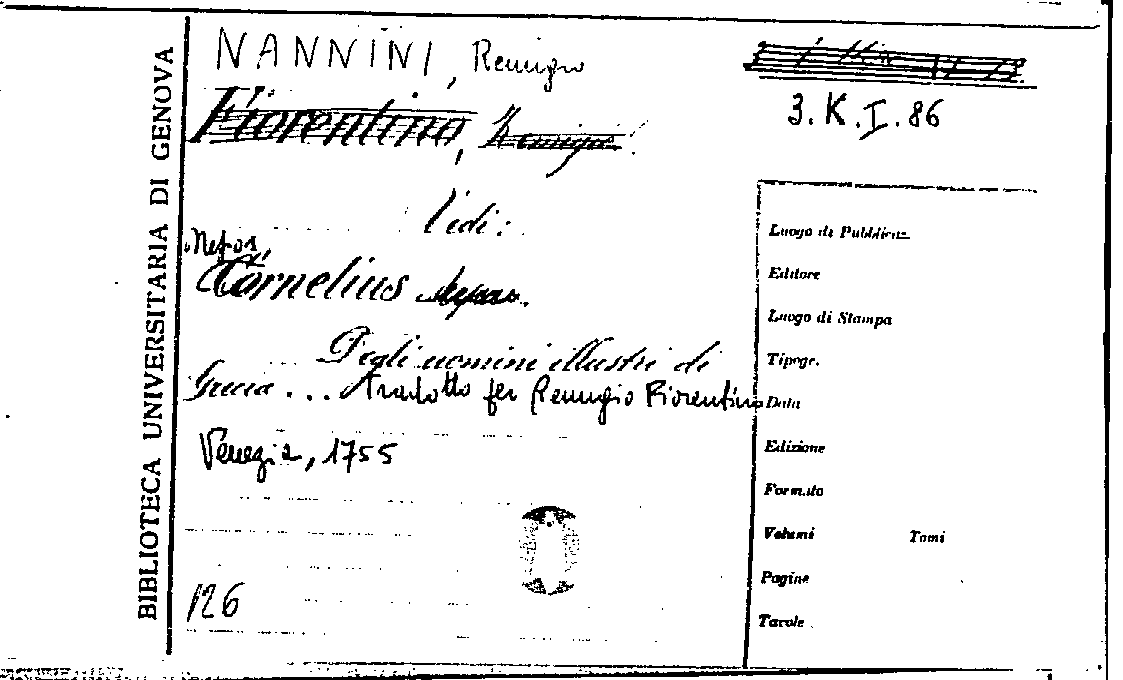 BIBLIOTECA UNIVERSITARIA DI GENOVA
NANNINI, Remigio
Fiorentino, Remigio
3.K.I.86
Vedi:
Nepos,
Cornelius
Degli uomini illustri di
Grecia ... tradotto per Remigio Fiorentino
Venezia, 1755
126
Luogo di Pubblicaz.
Editore
Luogo di Stampa
Tipogr.
Data
Edizione
Formato
Volumi Tomi
Pagine
Tavole